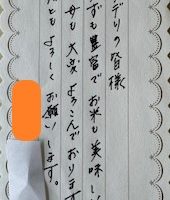 デリの皆様
ずも豊富でお米も美味しい
母も大変よろこんでおります
ともよろしくお願いします。